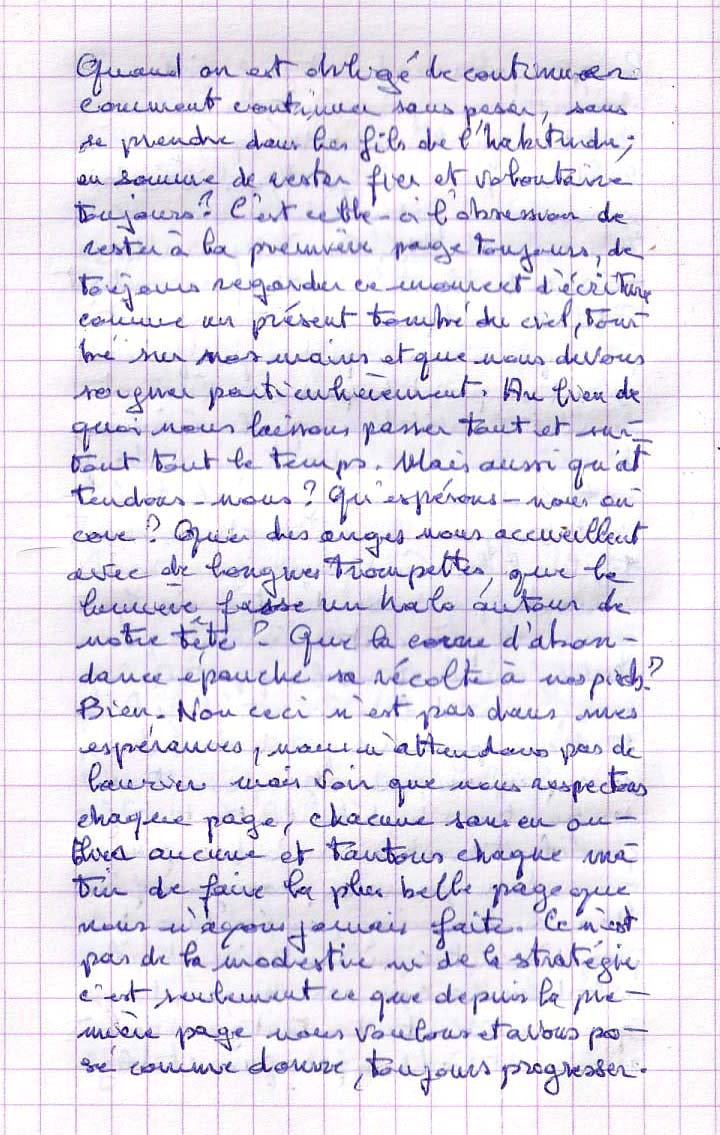 Quand on est obligé de continuer
comment continuer sans peser, sans
se prendre dans les fils de l'habitude;
en somme de rester fier et volontaire
toujours? C'est celle-ci l'obsession de
rester à la première page toujours, de
toujours regarder ce moment d'écriture
comme un présent tombé du ciel, tom-
bé sur nos mains et que nous devons
soigner particulièrement. Au lieu de
quoi nous laissons passer tout et sur-
tout tout le temps. Mais aussi qu'at
tendons-nous? Qu'espérons-nous en
core? Que des anges nous accueillent
avec de longues trompettes, que la
lumière fasse un halo autour de
notre tête? Que la corne d'abon-
dance épanche sa récolte à nos pieds?
Bien. Non ceci n'est pas dans mes
espérances, nous n'attendons pas de
laurier mais voir que nous respectons
chaque page, chacune sans en ou-
blier aucune et tentons chaque ma
tin de faire la plus belle page que
nous n'ayons jamais faite. Ce n'est
pas de la modestie ni de la stratégie
c'est seulement ce que depuis la pre-
mière page nous voulons et avons po-
sé comme donne, toujours progresser.